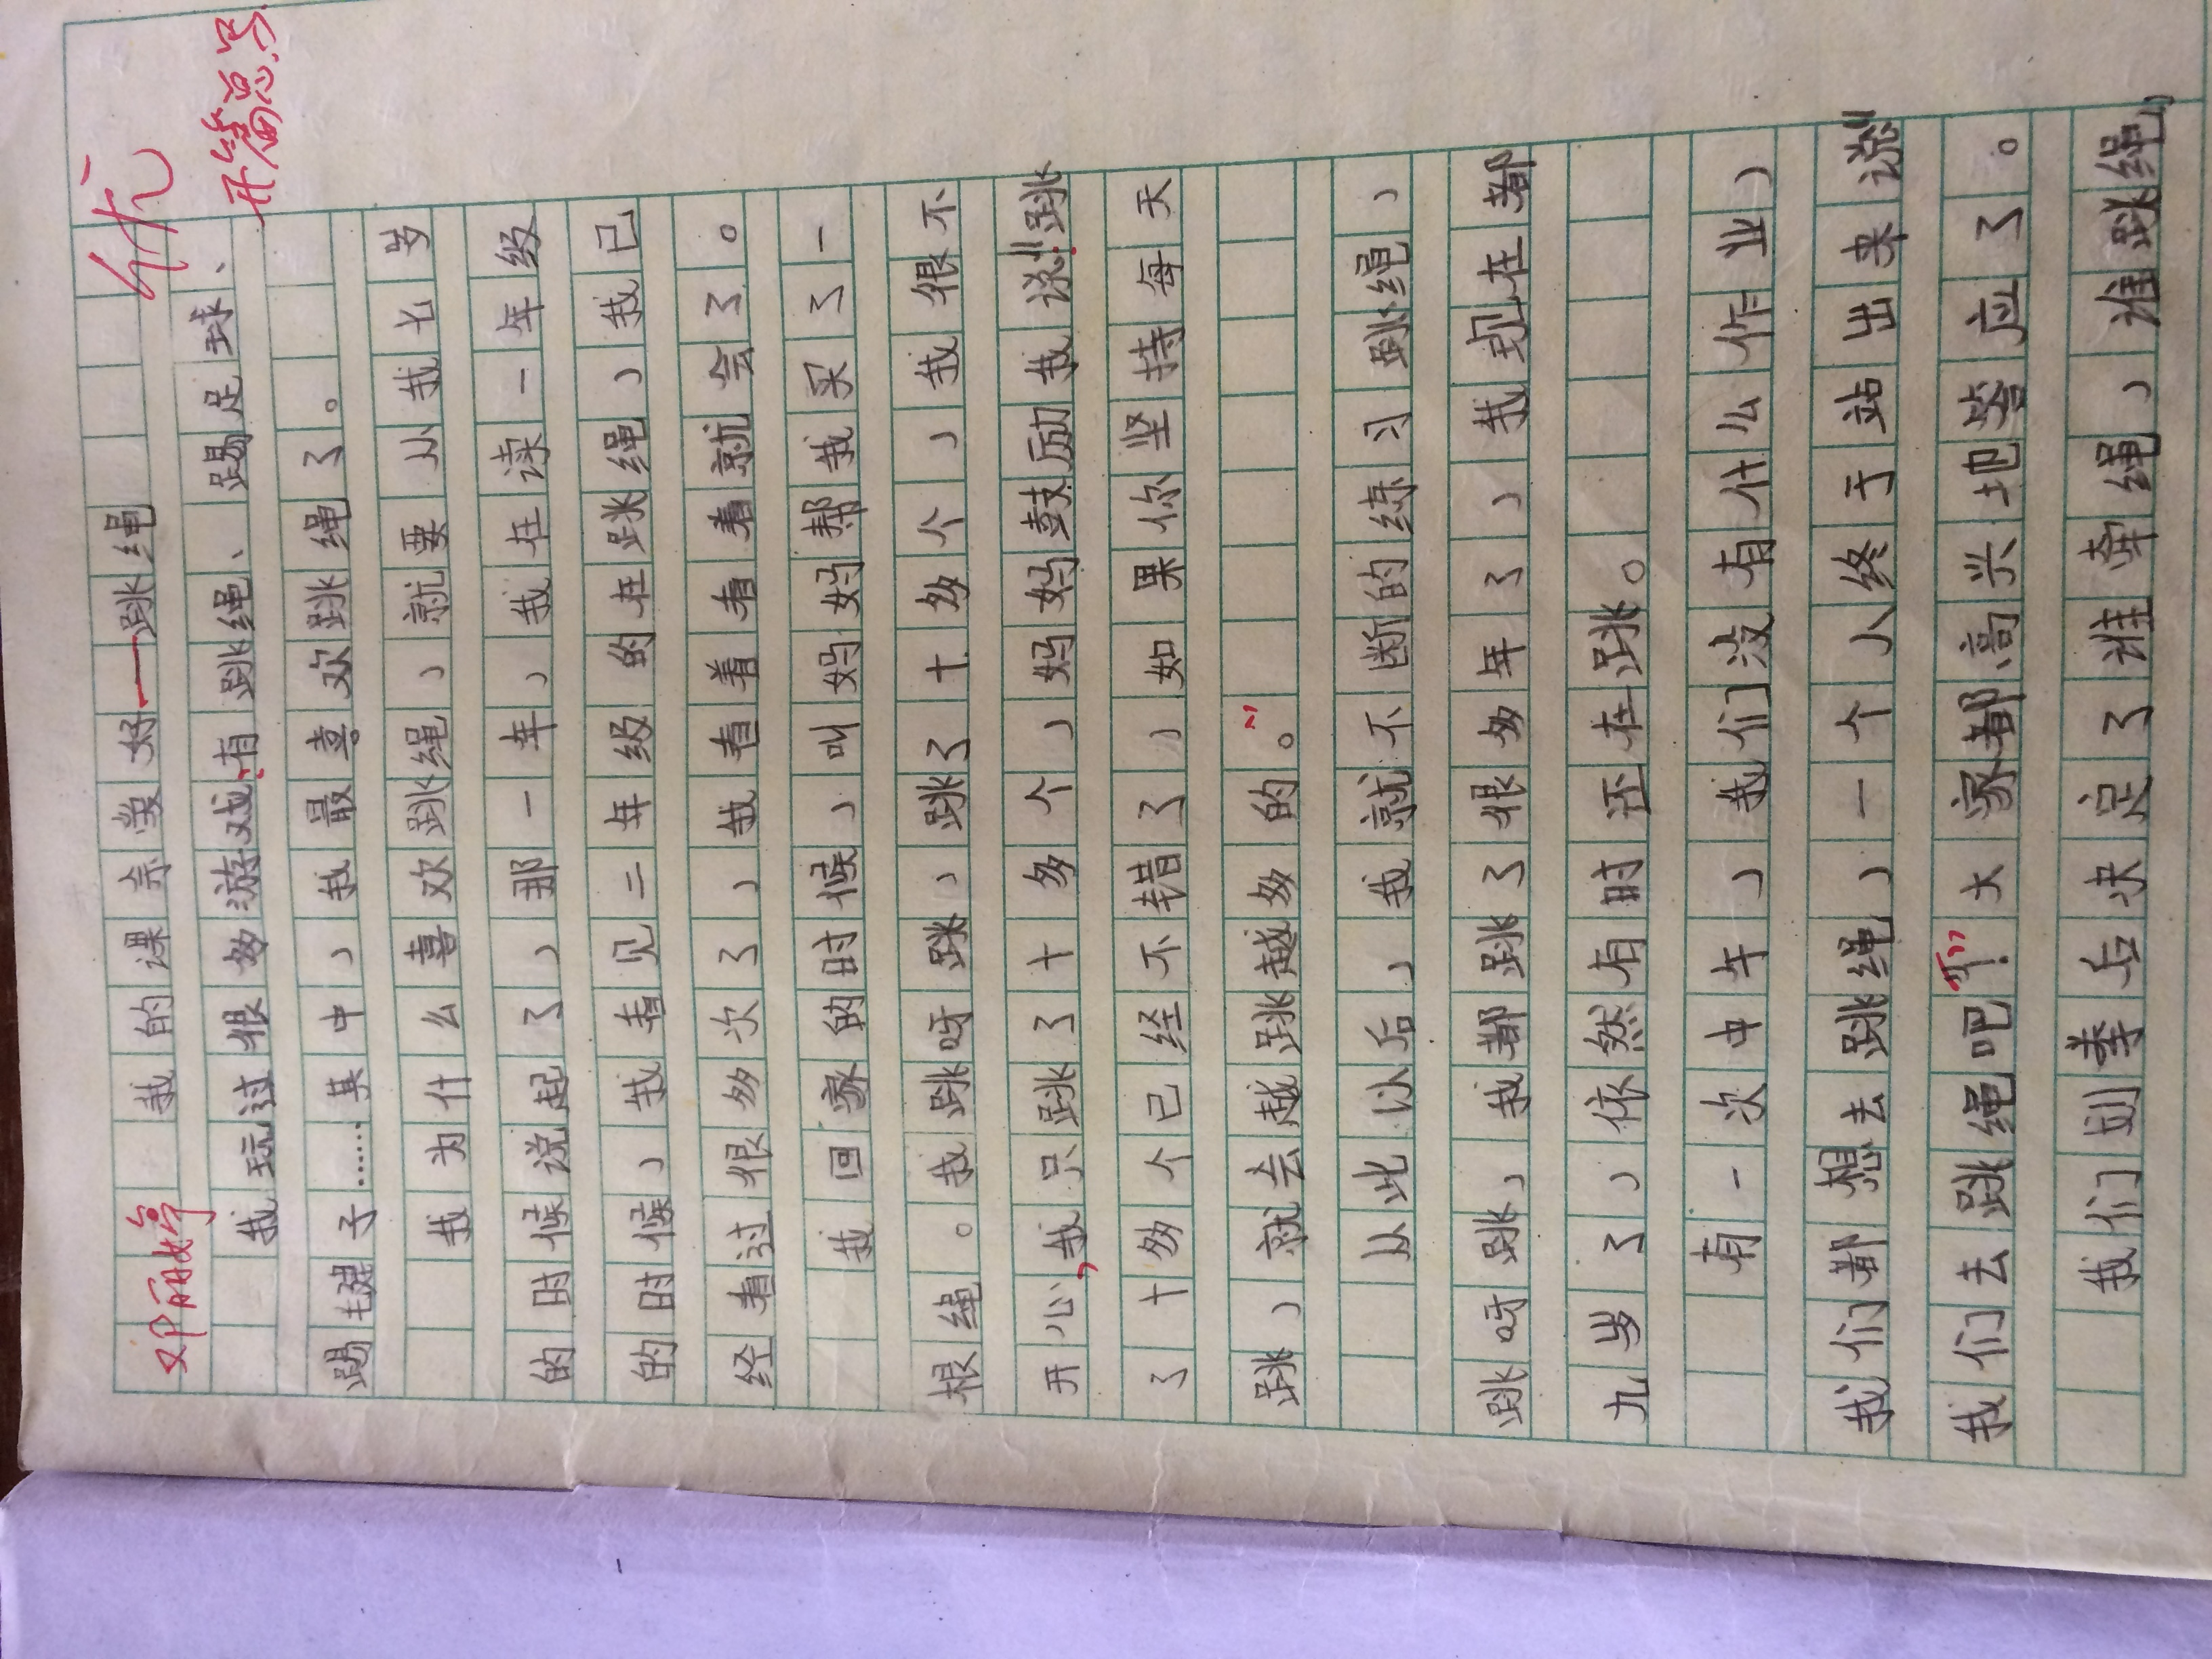 优
邓丽婷 我的课余爱好——跳绳
开篇点题
我玩过很多游戏,有跳绳、踢足球、
踢毽子……其中,我最喜欢跳绳了。
我为什么喜欢跳绳,就要从我七岁
的时候说起了,那一年,我在读一年级
的时候,我看见二年级的在跳绳,我已
经看过很多次了,我看着看着就会了。
我回家的时候,叫妈妈帮我买了一
根绳。我跳呀跳,跳了十多个,我很不
开心,我只跳了十多个,妈妈鼓励我说:“跳
了十多个已经不错了,如果你坚持每天
跳,就会越跳越多的。”
从此以后,我就不断的练习跳绳,
跳呀跳,我都跳了很多年了,我现在都
九岁了,依然有时还在跳。
有一次中午,我们没有什么作业,
我们都想去跳绳,一个人终于站出来说:“
我们去跳绳吧!”大家都高兴地答应了。
我们划拳后决定了谁牵绳,谁跳绳,